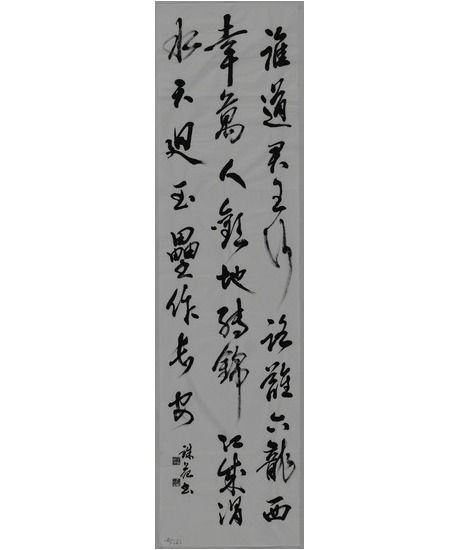 誰道君王行路難六龍西
幸萬人歡地轉錦江成渭
水天迴玉壘作長安
書